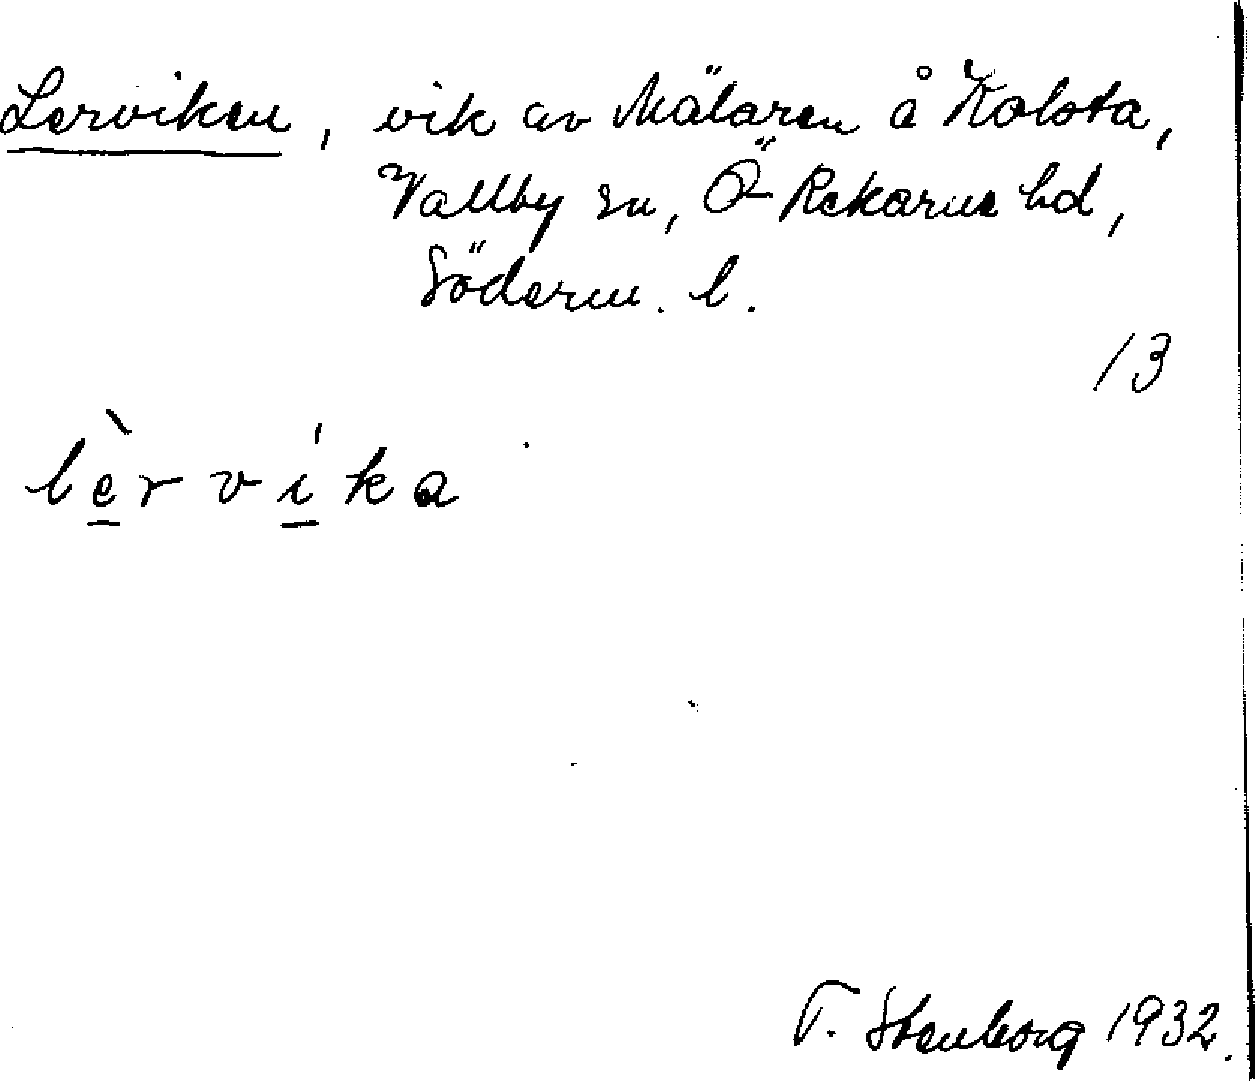 Lerviken, vik av Mälaren å Kolsta,
Vallby sn, Ö Rekarne hd,
Söderm. l.
13
lèrvíka
T. Stenborg 1932.